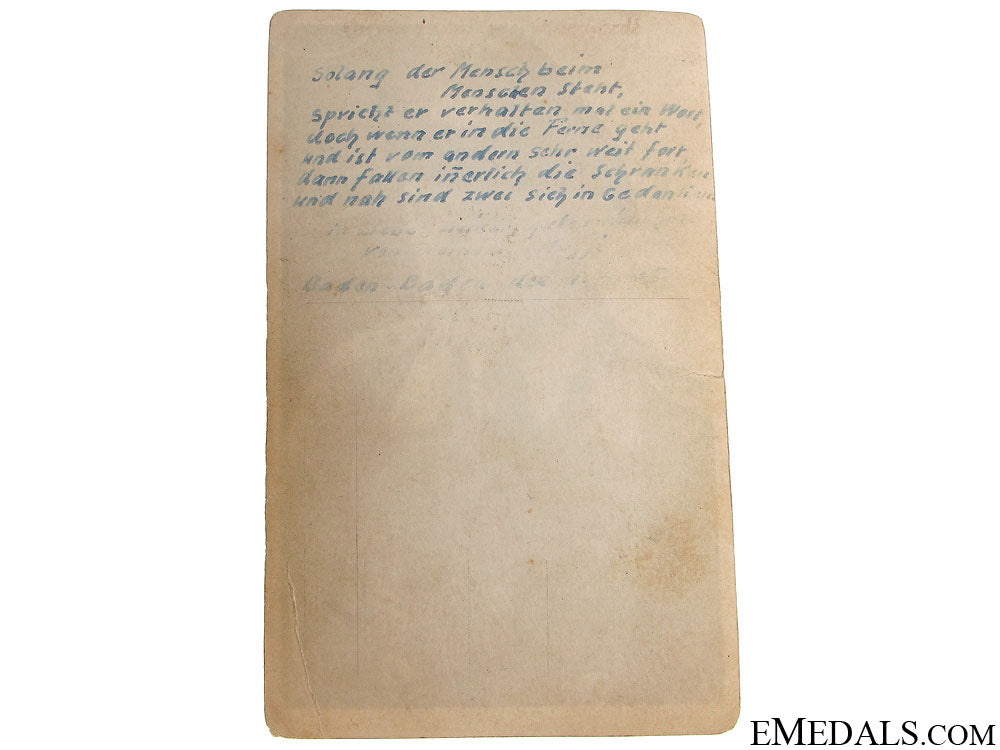 Solang der Mensch beim
Menschen steht,
spricht er verhalten mal ein Wort,
doch wenn er in die Ferne geht
und ist vom andern sehr weit fort
dann fallen iñerlich die Schranken
und nah sind zwei sich in Gedanken
Baden-Baden den
EMEDALS.COM